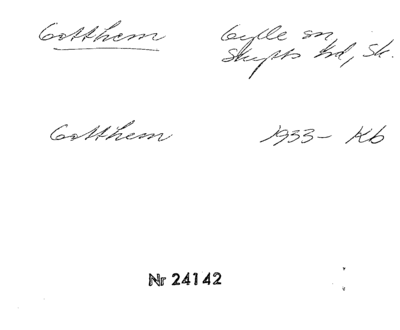 Gotthem Gylle sn,
Skytts hd, Sk.
Gotthem 1933- Kb
Nr 24142